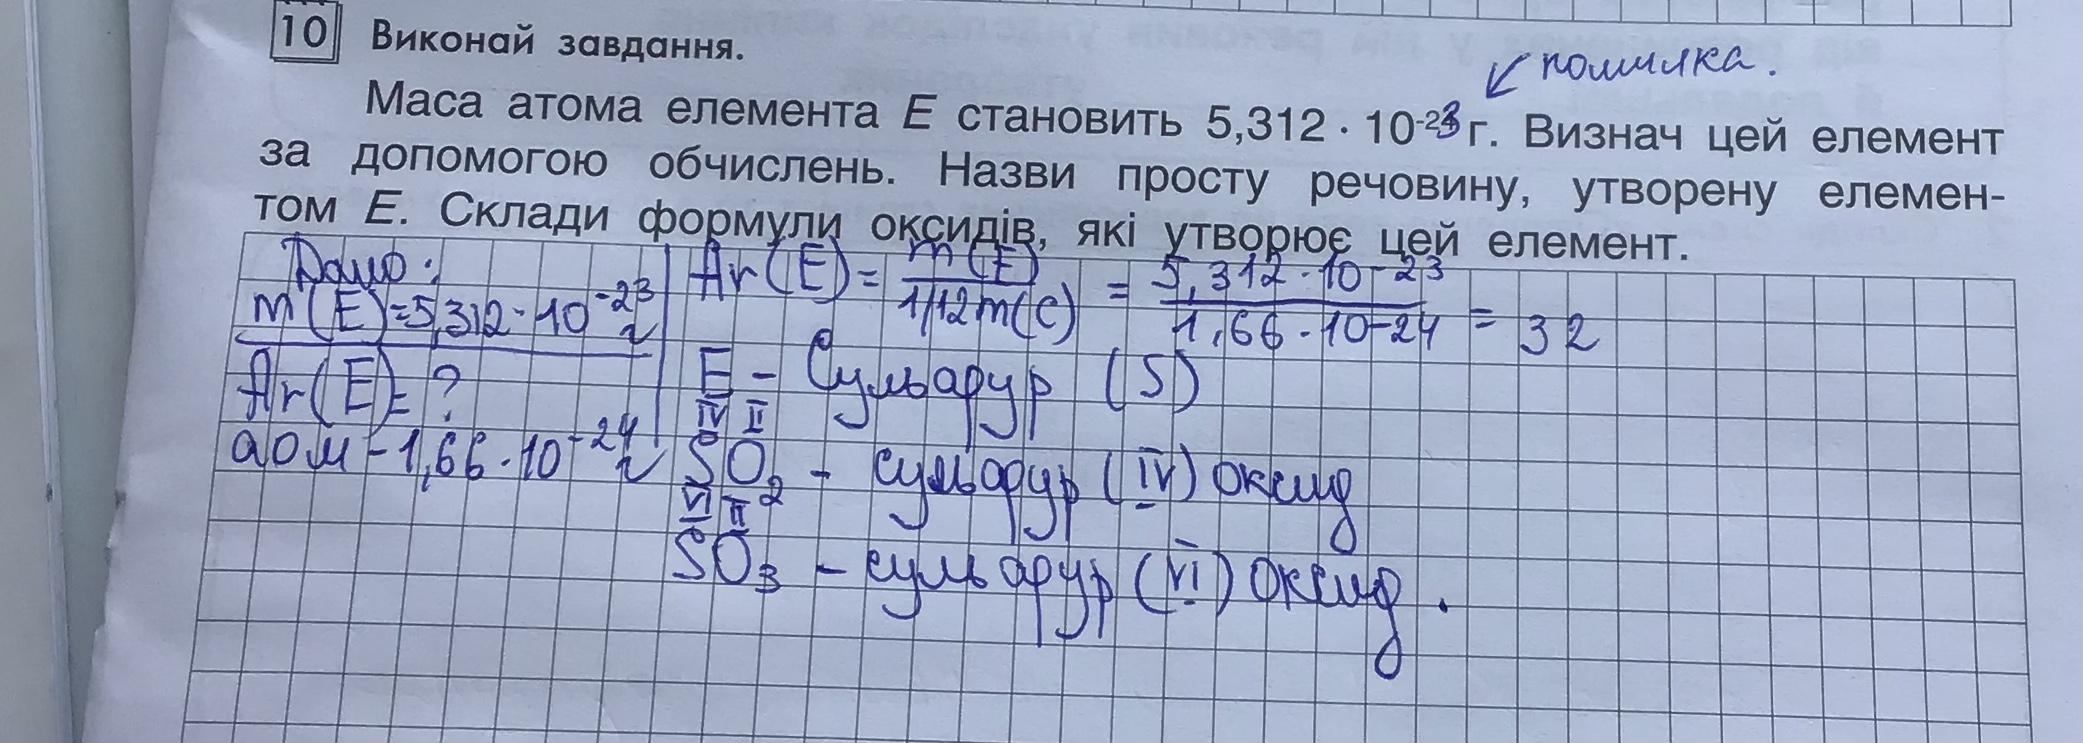 10 Виконай завдання.
← помилка.
Маса атома елемента Е становить 5,312 · 10⁻²³ г. Визнач цей елемент
за допомогою обчислень. Назви просту речовину, утворену елемен-
том Е. Склади формули оксидів, які утворює цей елемент.
Дано: Ar(E) = m(E) / 1/12m(C) = 5,312 · 10-23 / 1,66 · 10-24 = 32
m(E)=5,312 · 10⁻²³ г
Ar(E)= ? E - Сульфур (S)
IV II
аом - 1,66 · 10⁻²⁴ г SO₂ - сульфур (IV) оксид
VI II
SO₃ - сульфур (VI) оксид.